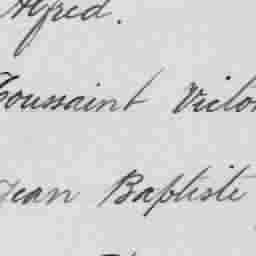 Alfred.
Toussaint Victor
Jean Baptiste